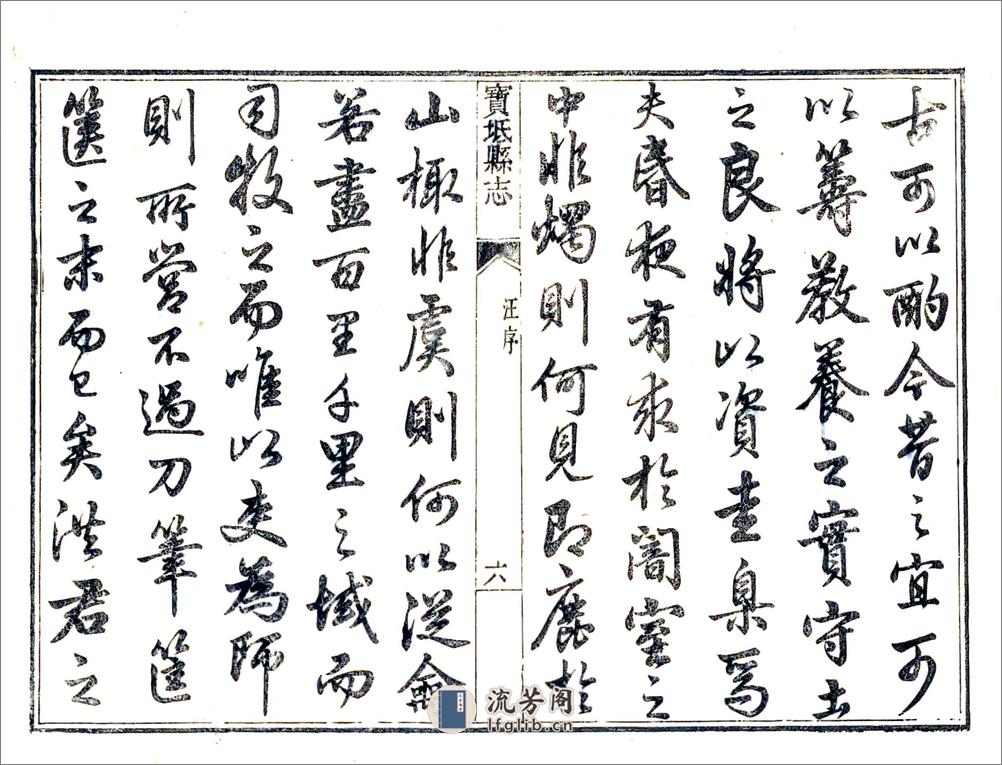 古可以酌今昔之宜可
以籌教養之實守土
之良將以資圭臬焉
夫昏夜有求於闇室之
中非燭則何見即鹿於
寶坻縣志
汪序
六
山非虞則何以從禽
若盡百里千里之域而
司牧之而唯以吏為師
則所營不過刀筆筐
篋之末而已矣洪君之
流芳阁
lfglib.cn